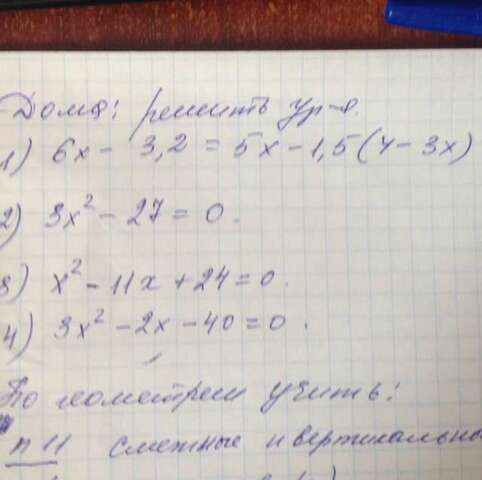 Дома: решить ур-я.
1) 6x - 3,2 = 5x - 1,5(4 - 3x)
2) 3x² - 27 = 0.
3) x² - 11x + 24 = 0.
4) 3x² - 2x - 40 = 0.
По геометрии учить:
п 11 смежные и вертикальны